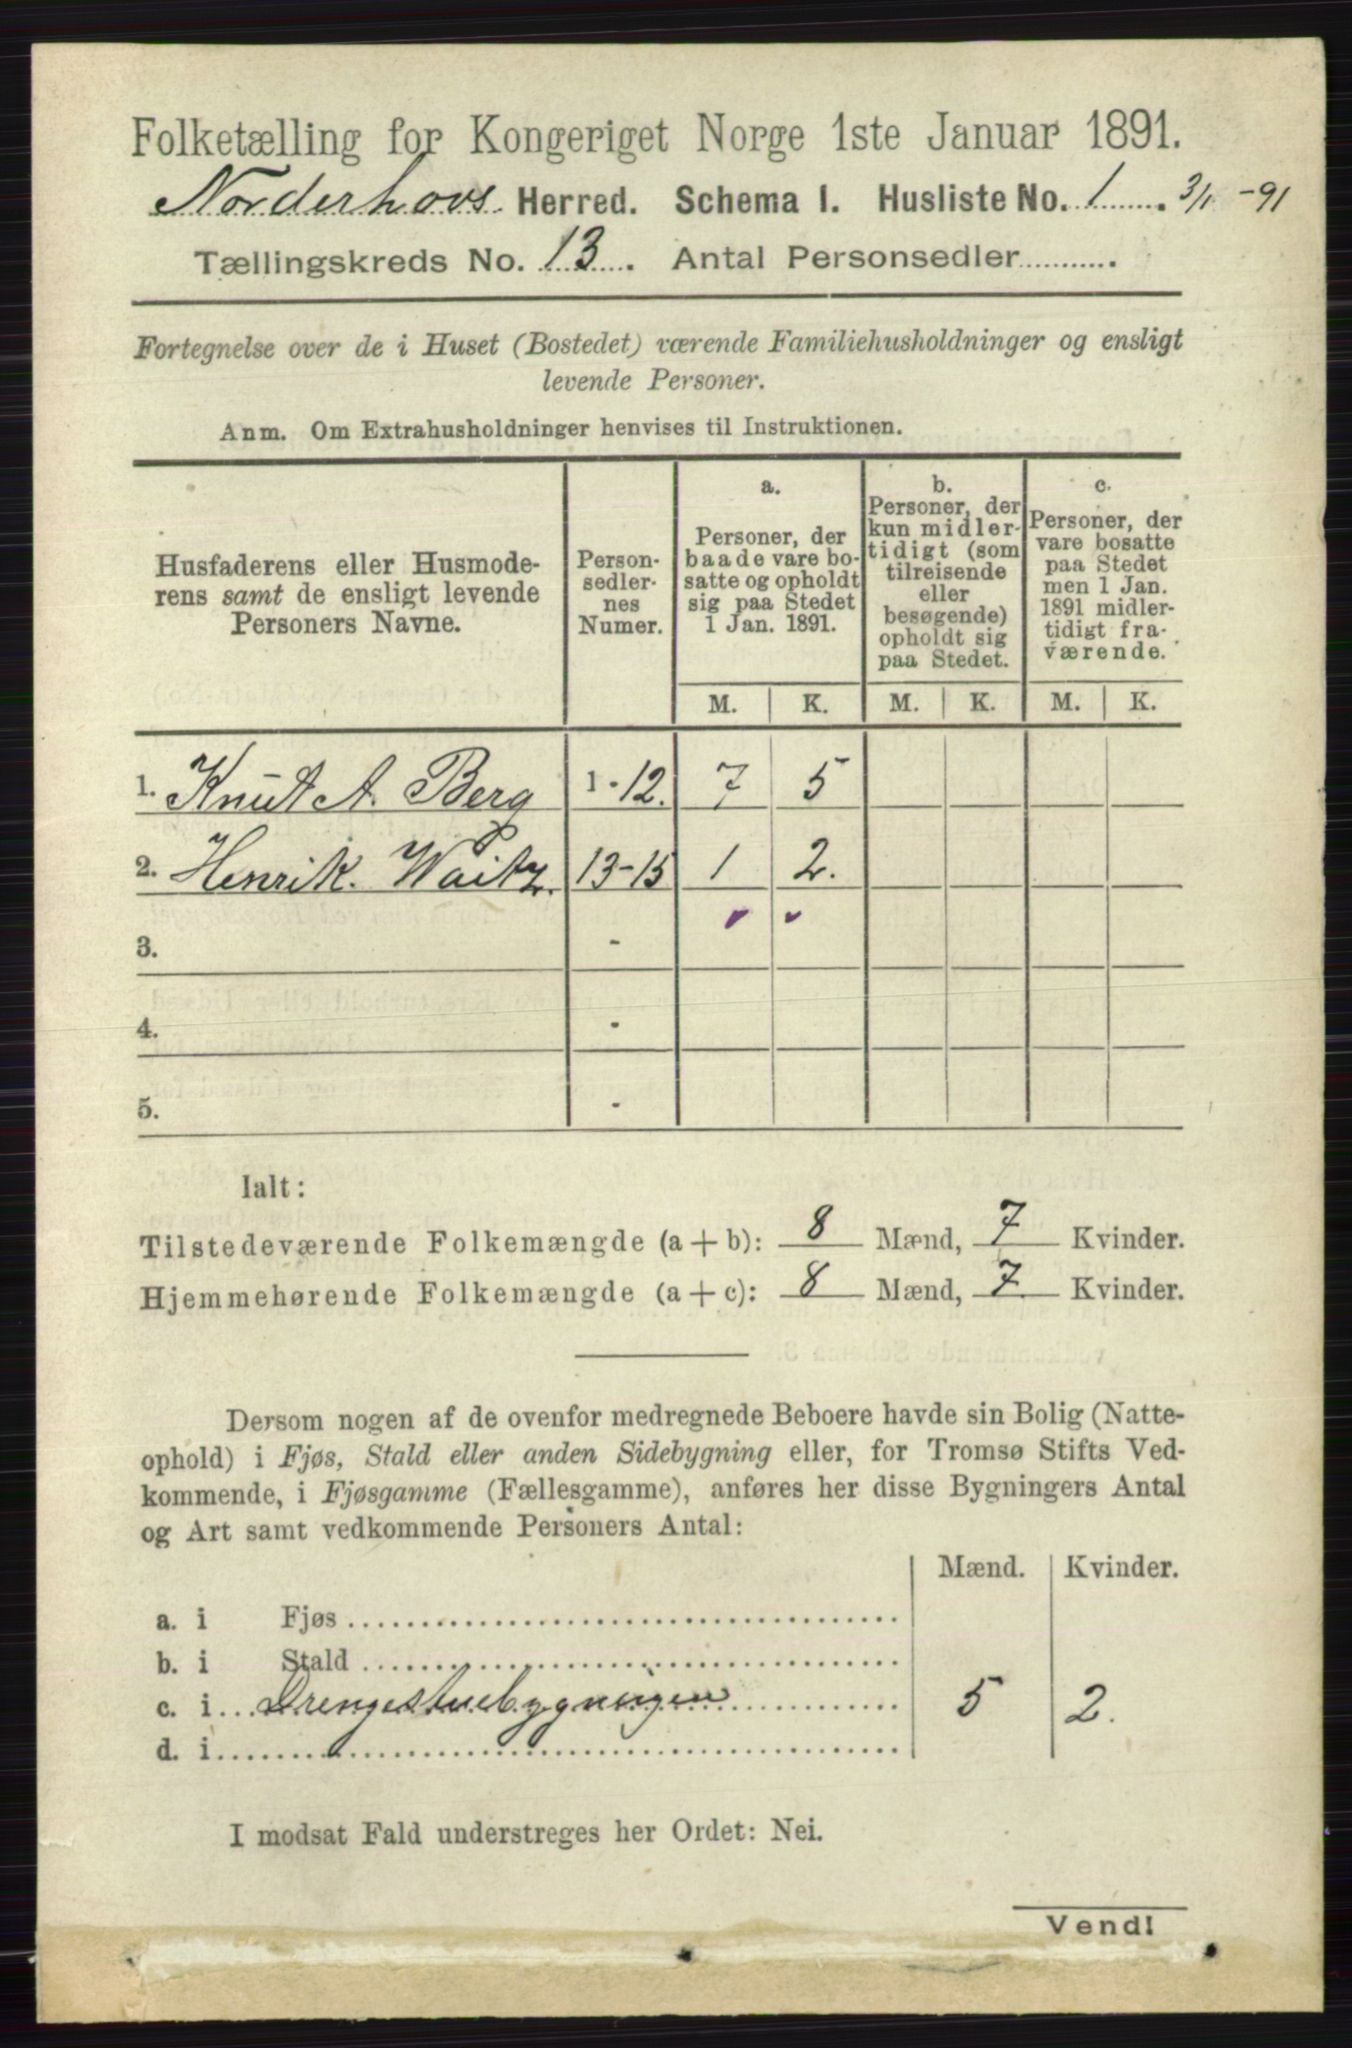 Folketælling for Kongeriget Norge 1ste Januar 1891.
Norderhovs Herred. Schema 1. Husliste No. 1. 3/1 -91
Tællingskreds No. 13. Antal Personsedler
Fortegnelse over de i Huset (Bostedet) værende Familiehusholdninger og ensligt
levende Personer.
Anm. Om Extrahusholdninger henvises til Instruktionen.
Husfaderens eller Husmode-
rens samt de ensligt levende
Personers Navne.
Person-
sedler-
nes
Numer.
a.
Personer, der
baade vare bo-
satte og opholdt
sig paa Stedet
1 Jan. 1891.
b.
Personer, der
kun midler-
tidigt (som
tilreisende
eller
besøgende)
opholdt sig
paa Stedet.
c.
Personer, der
vare bosatte
paa Stedet
men 1 Jan.
1891 midler-
tidigt fra-
værende.
M. K. M. K. M. K.
1. Knut A. Berg 1-12. 7 5
2. Henrik. Waitz. 13-15 1 2.
3. -
4. -
5. -
Ialt:
Tilstedeværende Folkemængde (a + b): 8 Mænd, 7 Kvinder.
Hjemmehørende Folkemængde (a + c): 8 Mænd, 7 Kvinder.
Dersom nogen af de ovenfor medregnede Beboere havde sin Bolig (Natte-
ophold) i Fjøs, Stald eller anden Sidebygning eller, for Tromsø Stifts Ved-
kommende, i Fjøsgamme (Fællesgamme), anføres her disse Bygningers Antal
og Art samt vedkommende Personers Antal:
Mænd. Kvinder.
a. i Fjøs
b. i Stald
c. i Drengestuebygningen 5 2.
d. i
I modsat Fald understreges her Ordet: Nei.
Vend!